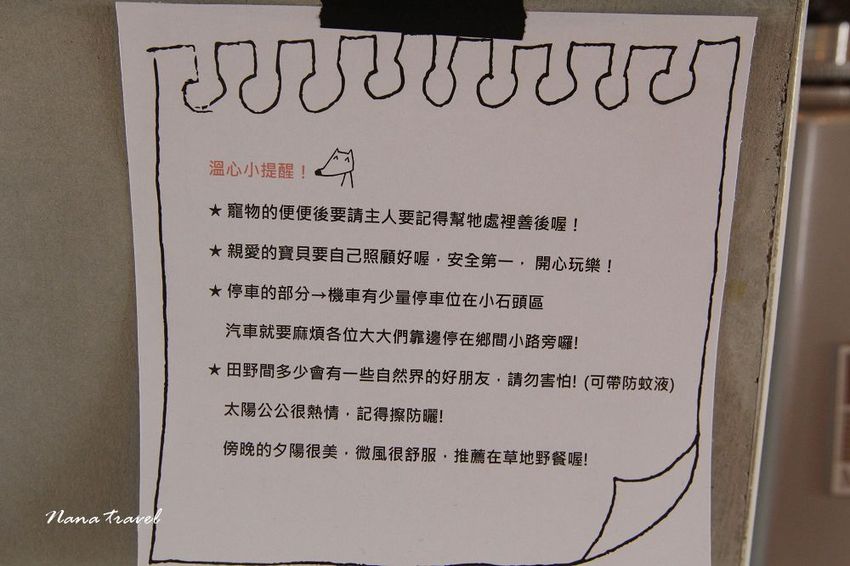 溫心小提醒！
★ 寵物的便便後要請主人要記得幫牠處裡善後喔！
★ 親愛的寶貝要自己照顧好喔，安全第一， 開心玩樂！
★ 停車的部分→機車有少量停車位在小石頭區
汽車就要麻煩各位大大們靠邊停在鄉間小路旁囉!
★ 田野間多少會有一些自然界的好朋友，請勿害怕! (可帶防蚊液)
太陽公公很熱情，記得擦防曬!
傍晚的夕陽很美，微風很舒服，推薦在草地野餐喔!
Nana travel